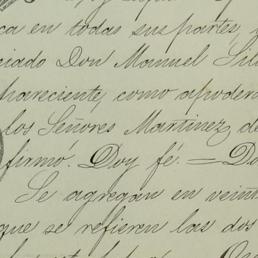 ca en todas sus partes, y
ciado Don Manuel Sil
hareciente, como apodera
los Señores Martinez de
firmó. Doy fé. — Do
Se agregan en veint
que se refieren las dos